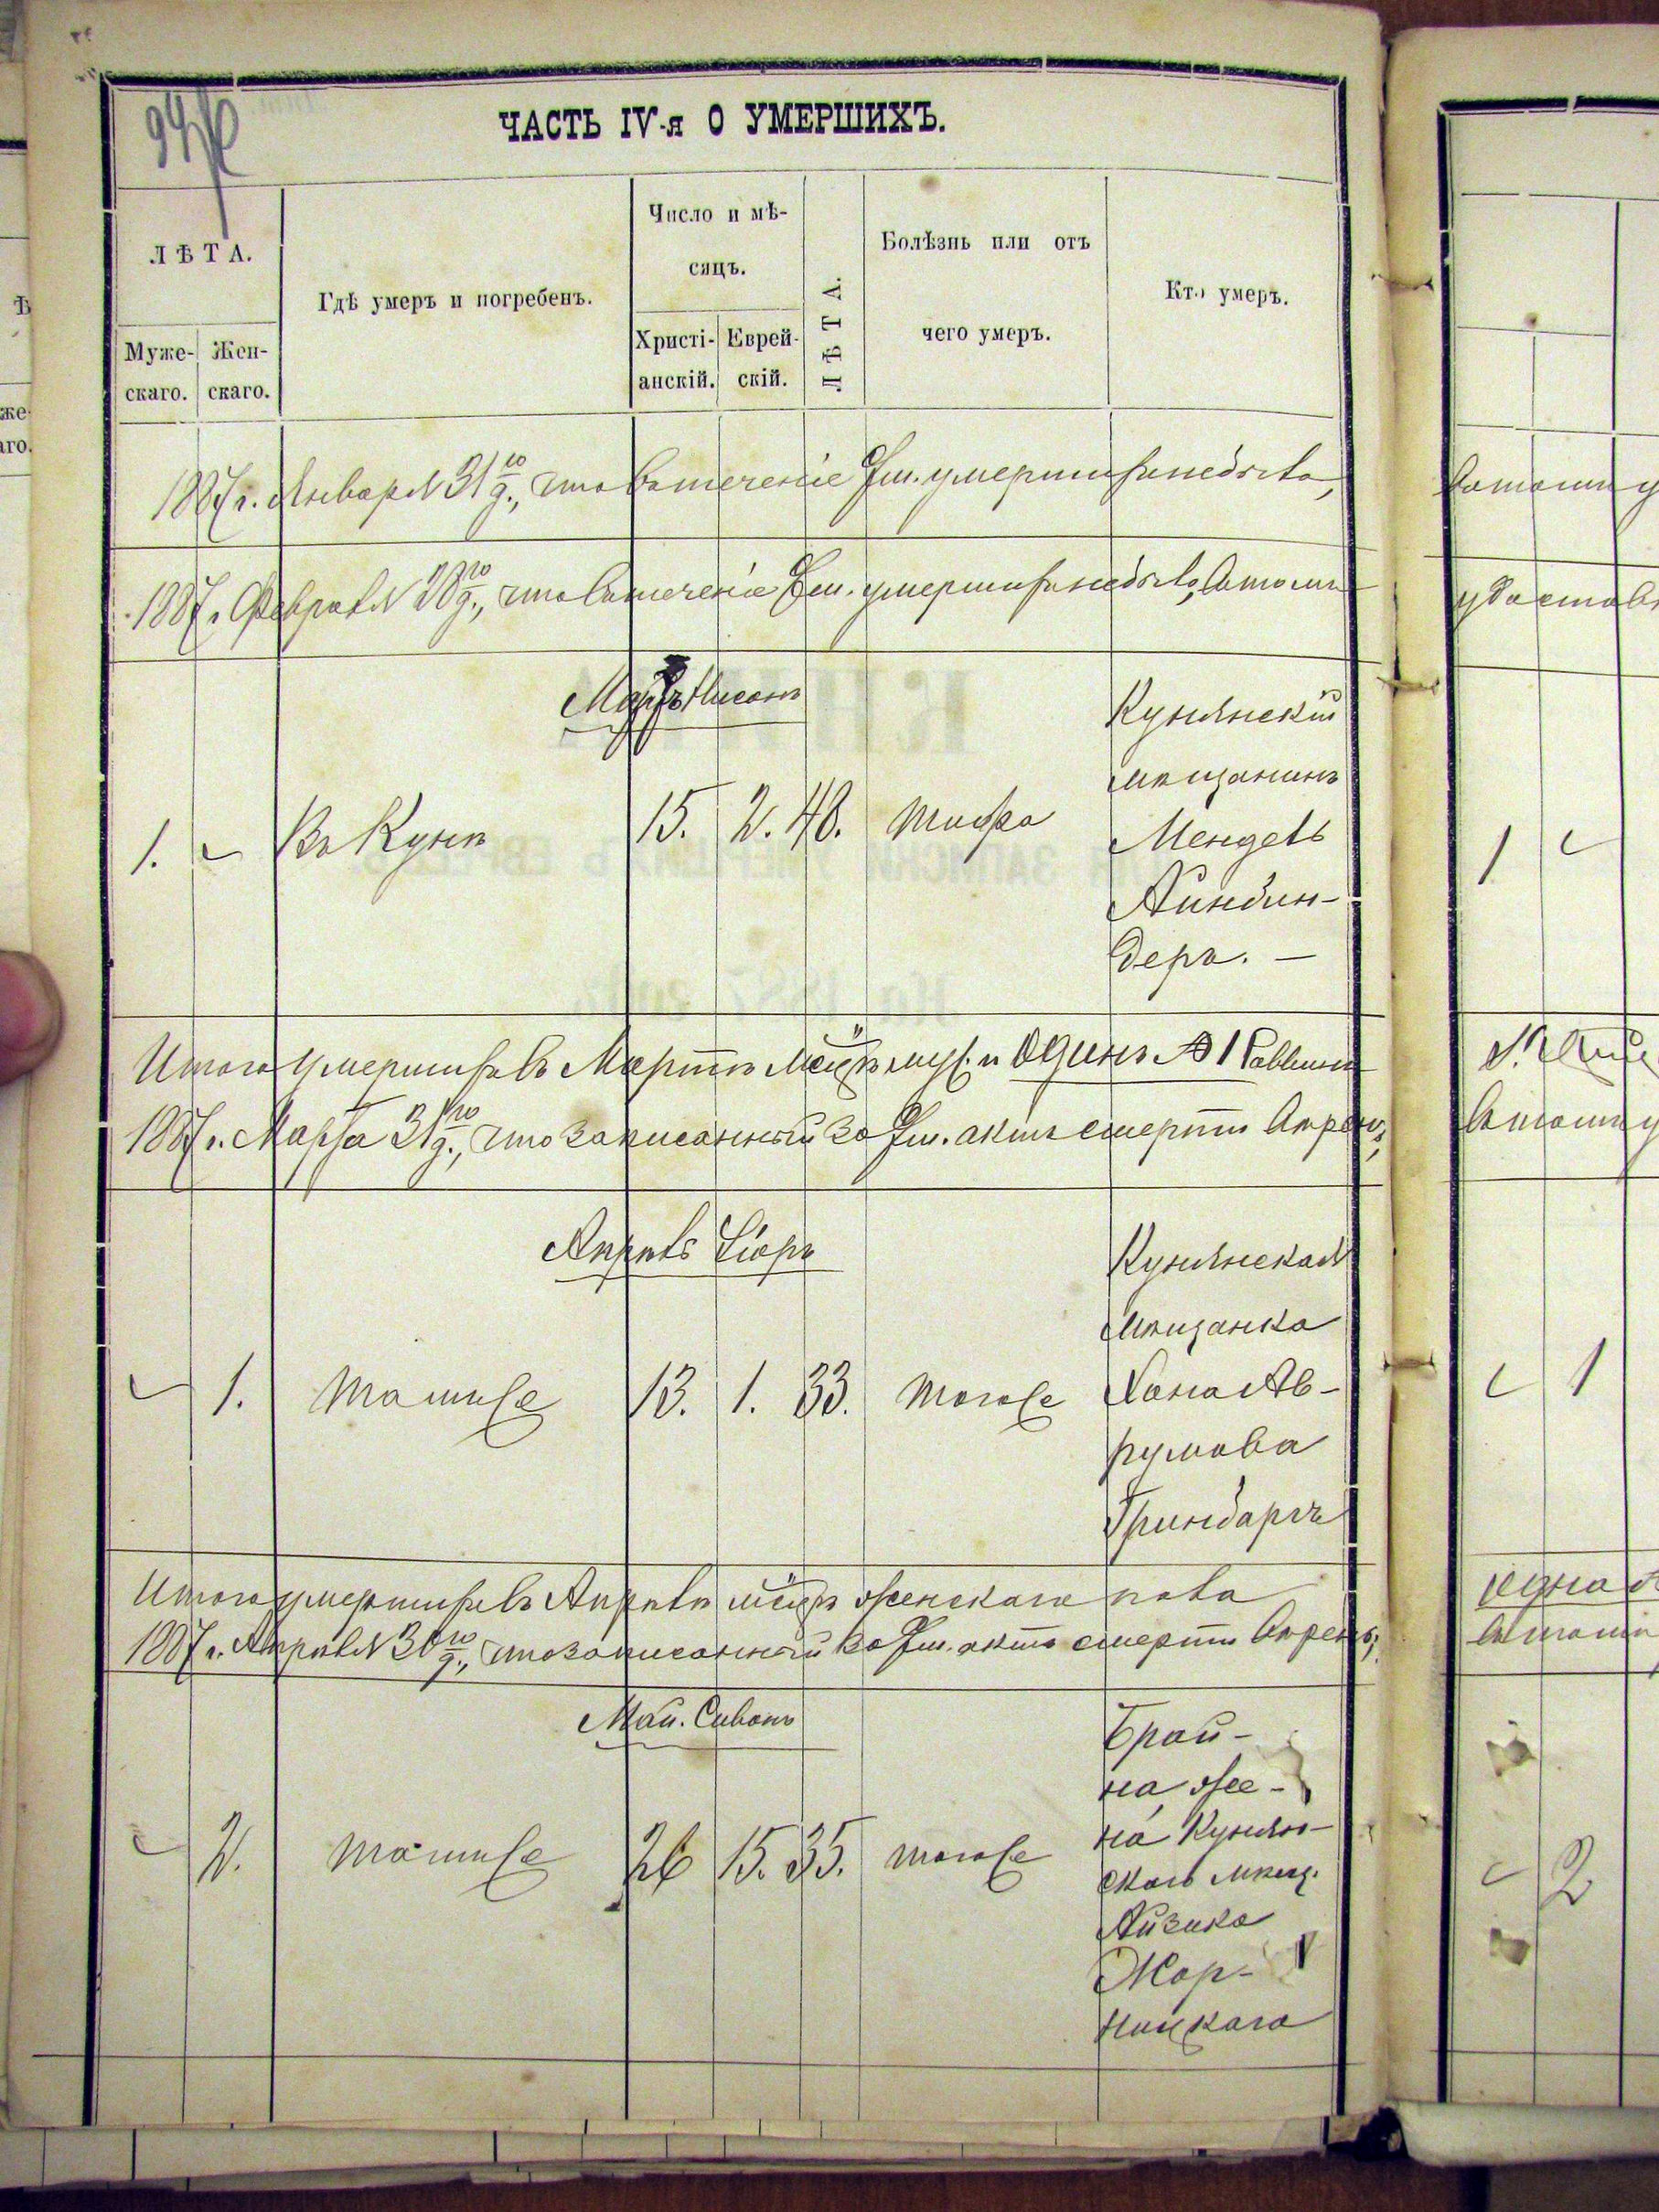 ЧАСТЬ IV-я О УМЕРШИХЪ.
ЛѢТА.
Муже-
скаго.
Жен-
скаго.
Гдѣ умеръ и погребенъ.
Число и мѣ-
сяцъ.
Христі-
анскій.
Еврей-
скій.
ЛѢТА.
Болѣзнь или отъ
чего умеръ.
Кто умеръ.
1887 г. Января 31го д., что втеченіе умершихъ небыло,
1887 г. Февраля 28го д., что втеченіе умершихъ небыло, втомъ
Мартъ Нисонъ
1. Въ Кунѣ 15. 2. 48. Тифа
Кунянскій
мѣщанинъ
Мендель
Айнбин-
деръ. –
Итого умершихъ въ Мартѣ м-цѣ муж. п. Одинъ Раввинъ
1887 г. Марта 31го д., что записанный актъ смерти вѣренъ,
Апрѣль Іюръ
1. тамже 13. 1. 33. тогоже
Кунянская
мѣщанка
Хана Ав-
румова
Гринбаргъ
Итого умершихъ въ Апрѣлѣ м-цѣ женскаго пола
1887 г. Апрѣля 30го д., что записанный актъ смерти вѣренъ,
Май. Сивонъ
2. тамже 26 15. 35. тогоже
Брай-
на же-
на Кунян-
скаго мѣщ.
Айзика
Жор-
ницкаго
1
1
одна
2